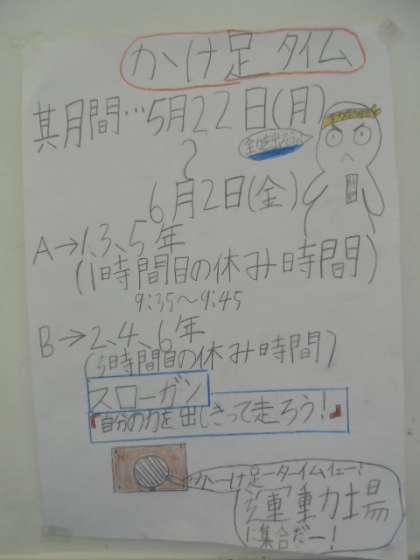 かけ足 タイム
其月間…5月22日(月)
〜
6月2日(金)
A→1、3、5年
(1時間目の休み時間)
9:35〜9:45
B→2、4、6年
(3時間目の休み時間)
スローガン
「自分の力を出しきって走ろう!」
かーけ足ータイムだー!
運動場
に集合だー!